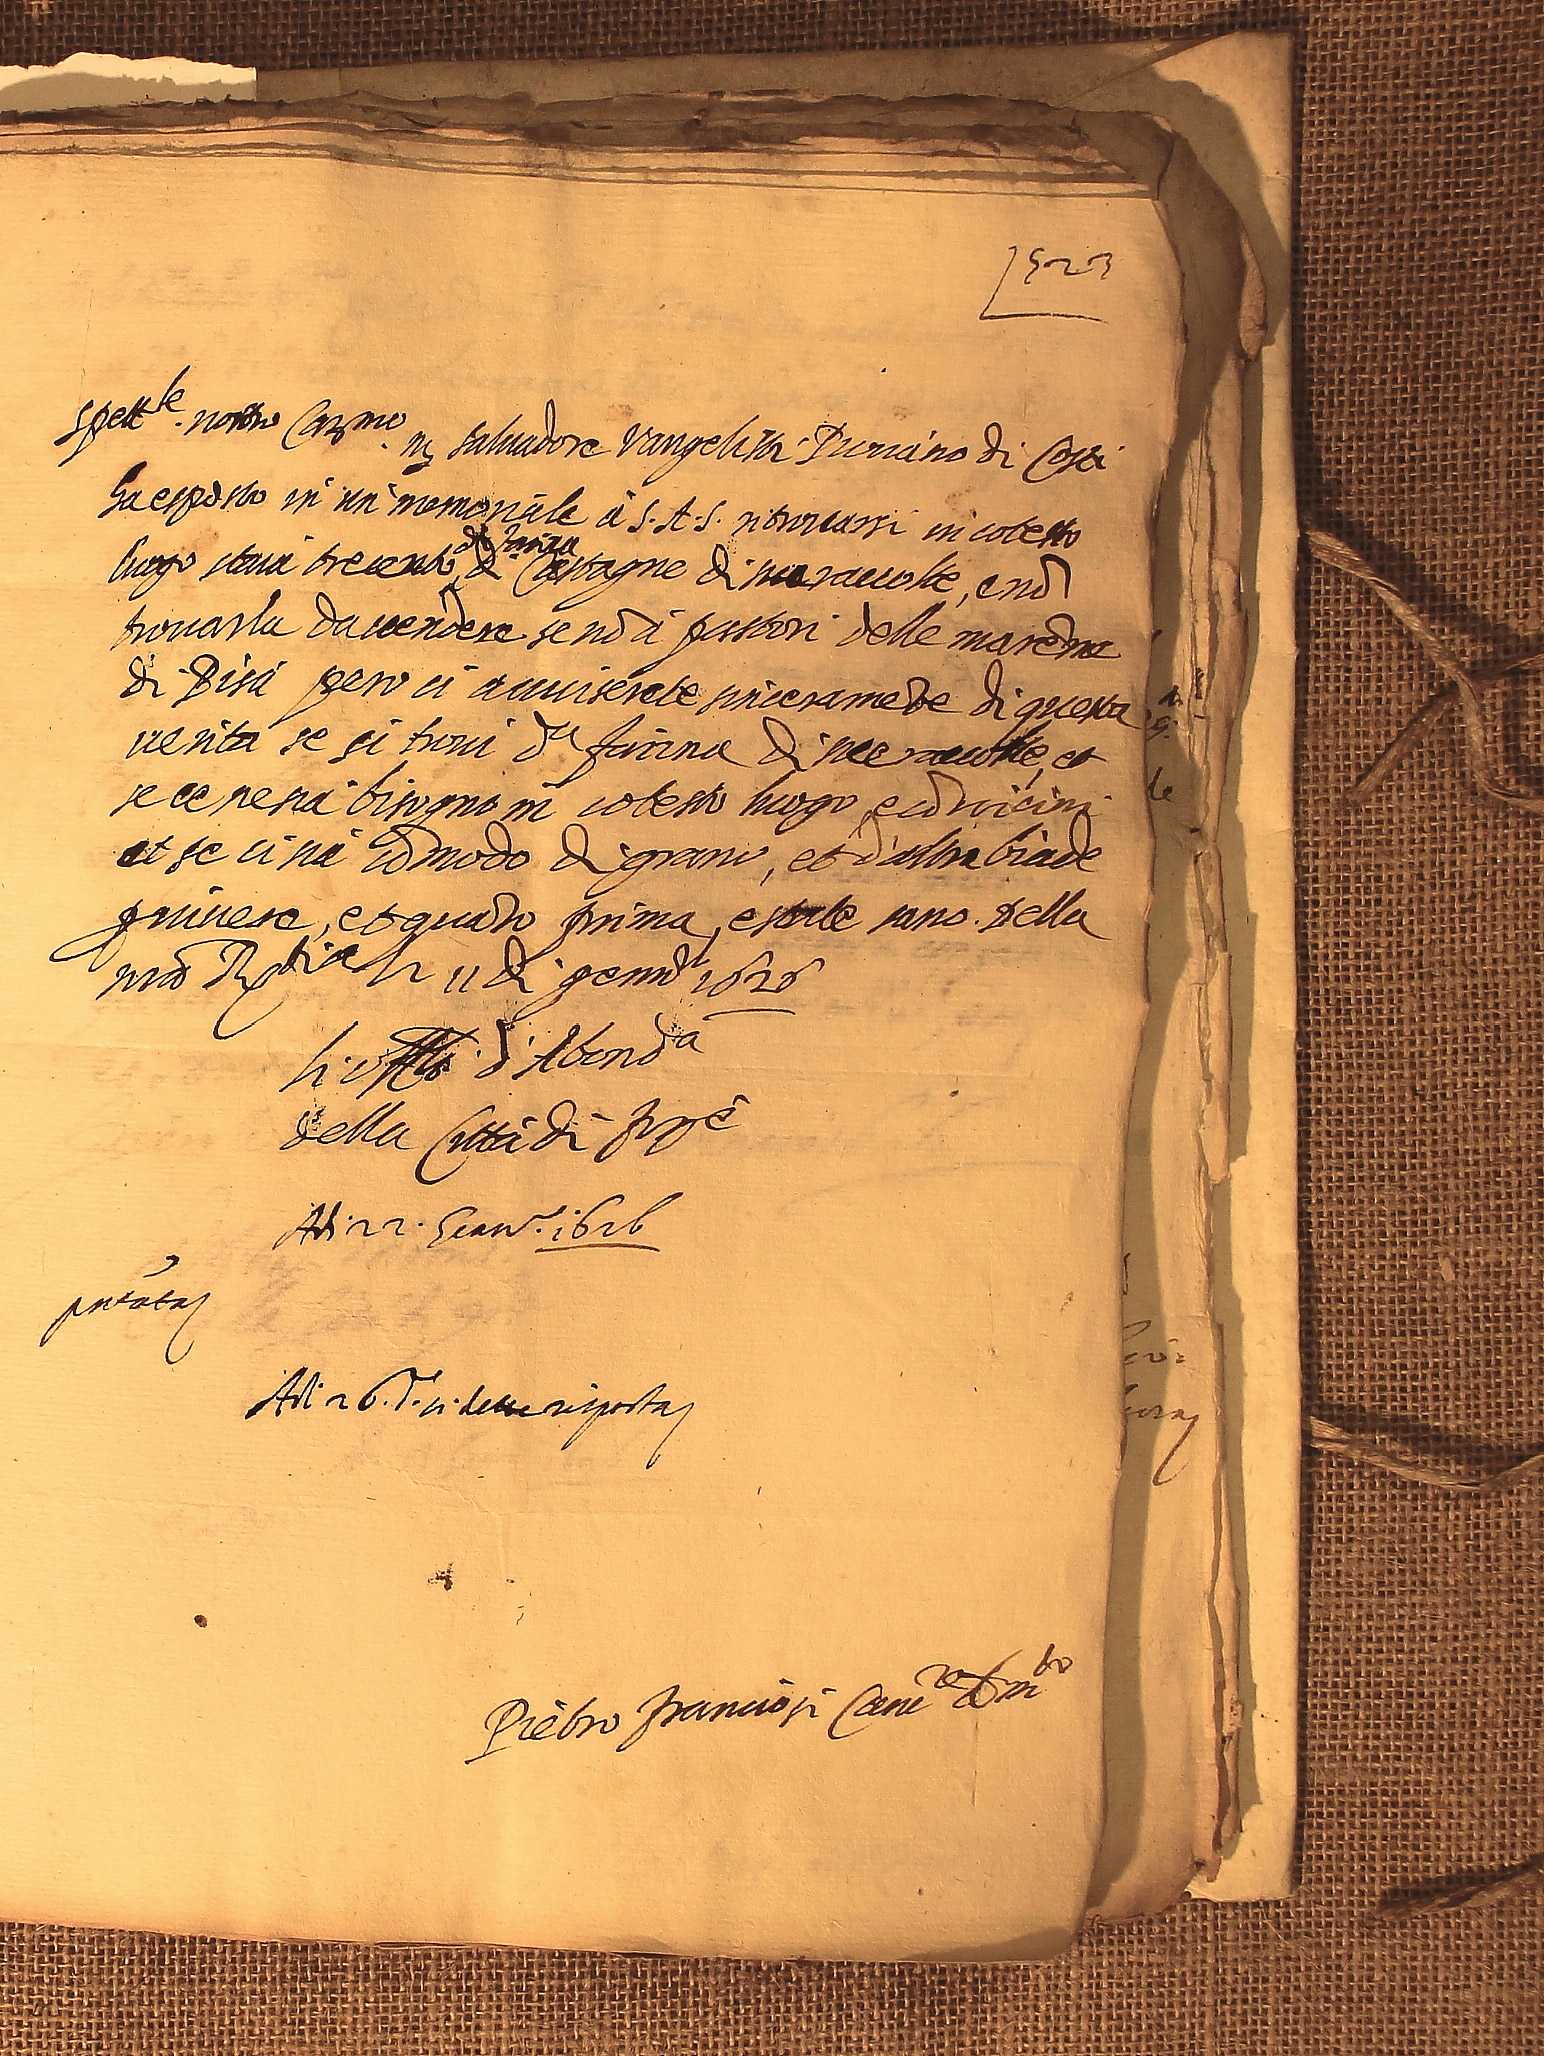 523
Spett.le nostro Carmo m Salvadore Vangelista Pievano di Costi
ha esposto in un memoriale à S. A. S. ritrovarsi in cotesto
luogo staia trecento di farina di Castagne di sua raccolte, e nō
trovarla da vendere se nō à pastori delle maremme
di Pisa però ci avviserete sinceramēte di questa
verita se si trovi d.a farina di sue raccolte, et
se ce ne sia bisogno in cotesto luogo, e cōvicini
et se ci sia comodo di grano, et d'altra biade
scrivere, et quāto prima, e state sano. Della
nrā Resid.a li 11 di genn.o 1626
li offli d'Abond.a
della Città di Firze
Adi 22. Genn.o 1626
pntata
Adi 26. d.o si dette risposta
Pietro Franciosi Canc.re d m.to